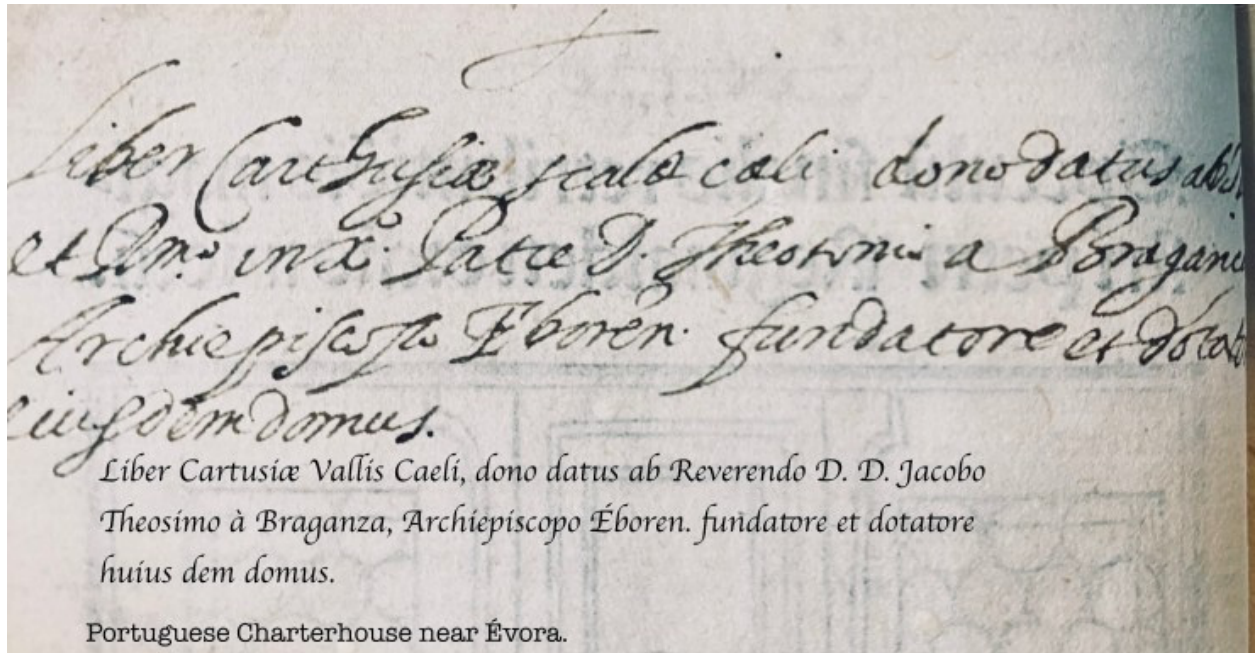 Liber Carthusiæ scalæ cæli dono datus ab
et Rmo. in X.º Patre D. Theotonio a Bragan
Archiepiscopo Eboren. fundatore et dotato
eiusdem domus.
Liber Cartusiæ Vallis Caeli, dono datus ab Reverendo D. D. Jacobo
Theosimo à Braganza, Archiepiscopo Éboren. fundatore et dotatore
huius dem domus.
Portuguese Charterhouse near Évora.